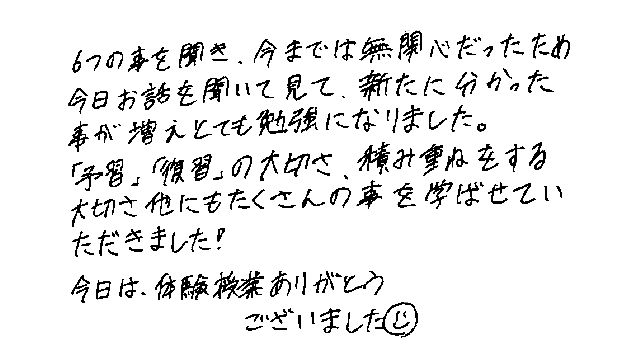 6つの事を聞き、今までは無関心だったため
今日お話を聞いて見て、新たに分かった
事が増えとても勉強になりました。
「予習」「復習」の大切さ、積み重ねをする
大切さ他にもたくさんの事を学ばせてい
ただきました!
今日は、体験授業ありがとう
ございました